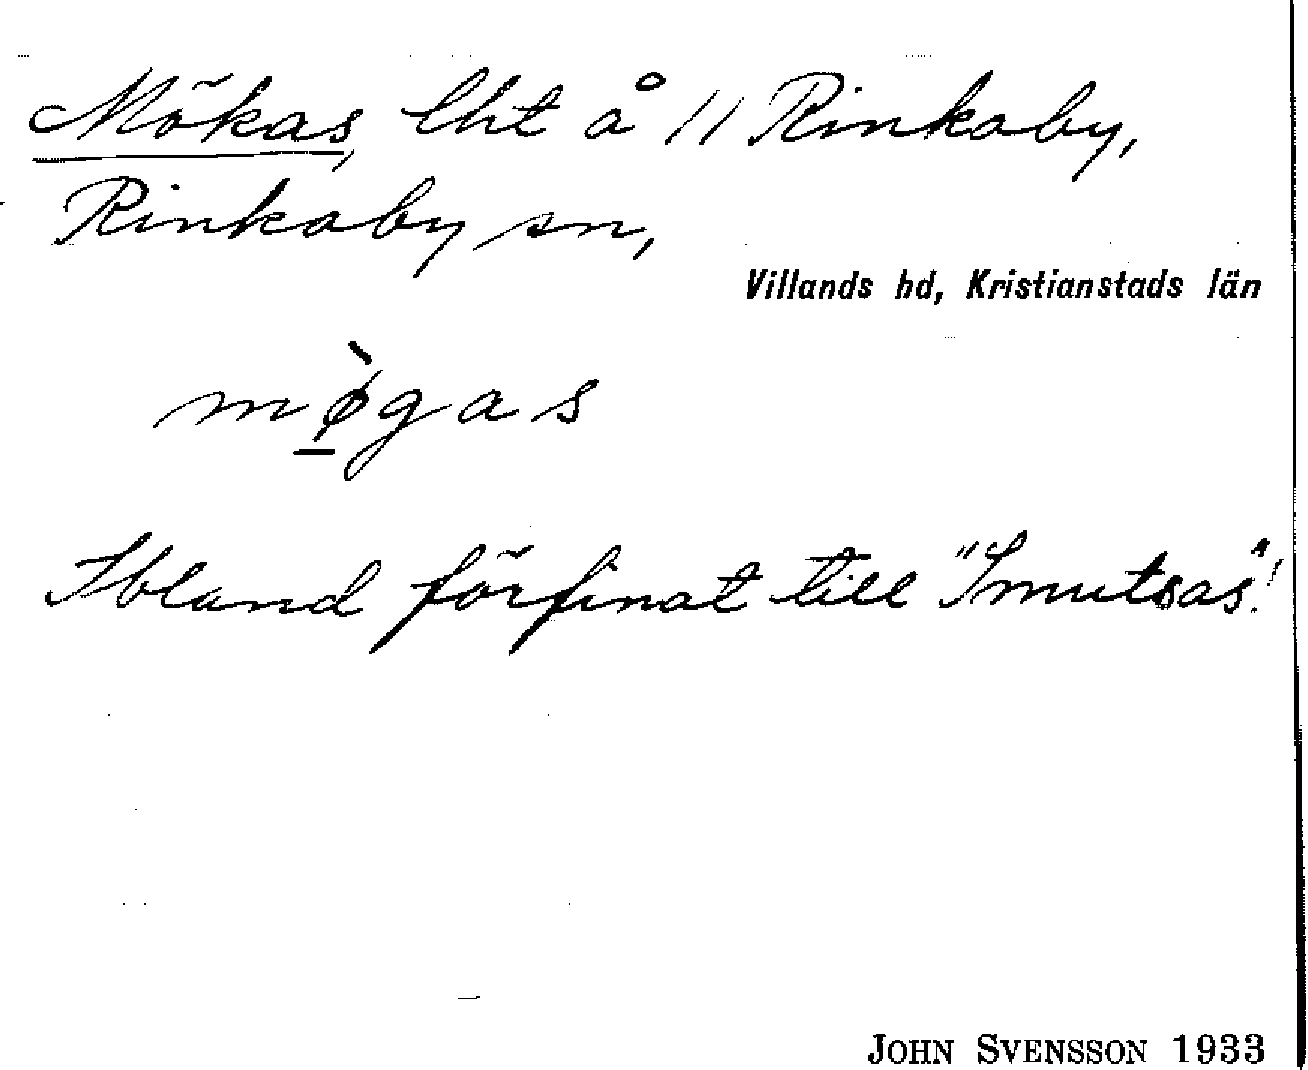 Mökas, lht å 11 Rinkaby,
Rinkaby sn,
Villands hd, Kristianstads län
mø̀gas
Ibland förfinat till "Smutsas"!
JOHN SVENSSON 1933